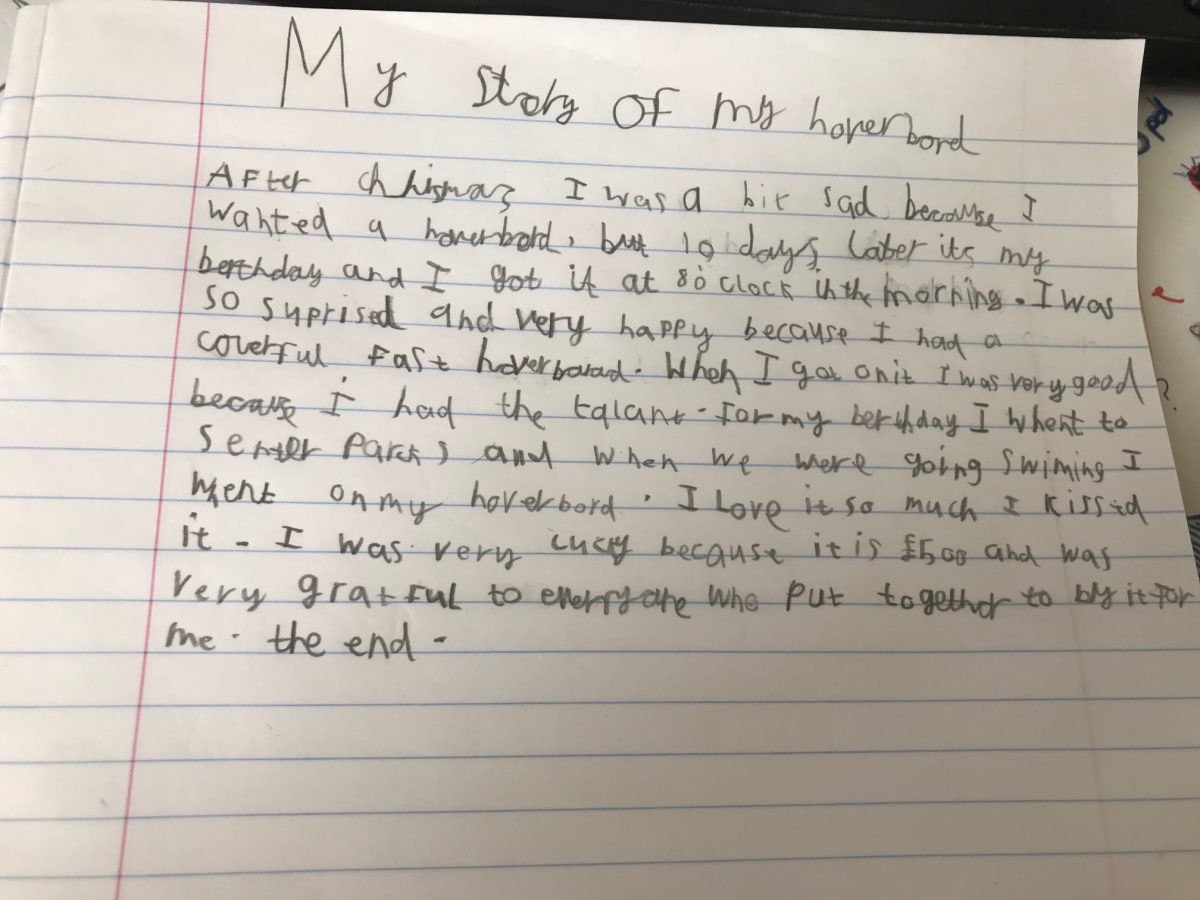 My story of my hoverbord
After chhismas I was a bit sad because I
wanted a hoverbord, but 10 days later its my
berthday and I got it at 8 o clock in the morning. I was
so suprised and very happy because I had a
coverful fast hoverboard. When I got on it I was very good
because I had the talant. for my berthday I whent to
Senter Parcks and when we were going swiming I
whent on my hoverbord. I Love it so much I kissed
it. I was very lucky because it is £500 and was
very gratful to everryone who put together to by it for
me. the end.